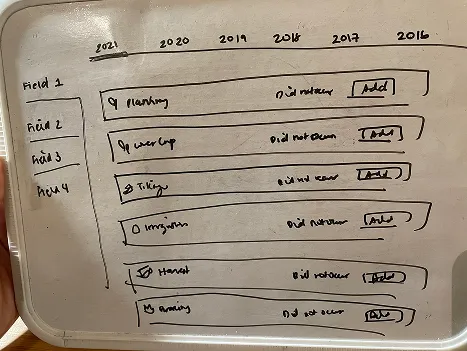 2021 2020 2019 2018 2017 2016
Field 1
Planting Did not occur Add
Field 2
Cover Crop Did not occur Add
Field 3
Tillage Did not occur Add
Field 4
Irrigation Did not occur Add
Harvest Did not occur Add
Did not occur Add